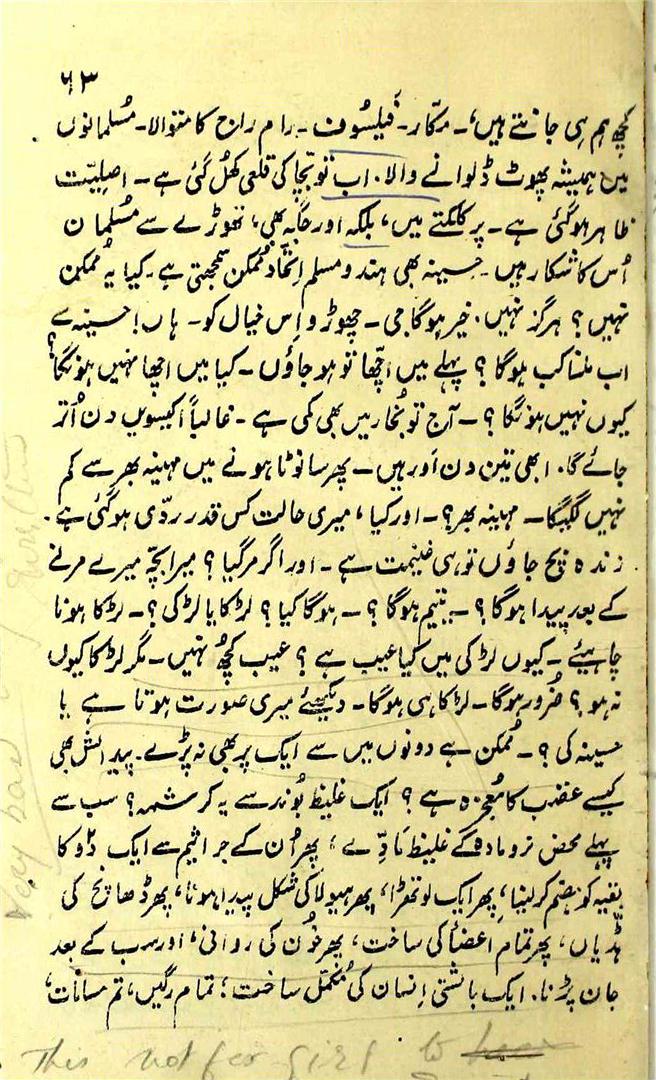 ۶۳
کچھ ہم ہی جانتے ہیں، ۔ مکّار ۔ فَیلسُوف ۔ رام راج کا متوالا ۔ مُسلمانوں
میں ہمیشہ پھوٹ ڈلوانے والا. اب تو بچّا کی قلعی کھُل گئی ہے ۔ اصلیّت
ظاہر ہوگئی ہے ۔ پر کلکتے میں، بلکہ اور جگہ بھی، تھوڑے سے مُسلمان
اُس کا شکار ہیں ۔ حسینہ بھی ہندو مسلم اِتّحاد مُمکن سمجھتی ہے ۔ کیا یہ مُمکن
نہیں؟ ہرگز نہیں. خیر ہوگا جی ۔ چھوڑو اِس خیال کو ۔ ہاں! حسینہ سے
اب ملنا کب ہوگا؟ پہلے میں اچّھا تو ہو جاؤں ۔ کیا میں اچھا نہیں ہونگا؟
کیوں نہیں ہونگا؟ ۔ آج تو بُخار میں بھی کمی ہے ۔ غالباً اکیسویں دن اُتر
جائے گا. ابھی تین دن اَور ہیں ۔ پھر سانوٹا ہونے میں مہینہ بھر سے کم
نہیں لگیگا ۔ مہینہ بھر؟ ۔ اور کیا، میری حالت کس قدر ردّی ہوگئی ہے.
زندہ بچ جاؤں تو ہی غنیمت ہے ۔ اور اگر مر گیا؟ میرا بچّہ میرے مرنے
کے بعد پیدا ہوگا؟ ۔ یتیم ہوگا؟ ۔ ہوگا کیا؟ لڑکا یا لڑکی؟ ۔ لڑکا ہونا
چاہیئے ۔ کیوں لڑکی میں کیا عیب ہے؟ عیب کچھُ نہیں ۔ مگر لڑکا کیوں
نہ ہو؟ ضُرور ہوگا ۔ لڑکا ہی ہوگا ۔ دیکھیئے میری صورت ہوتا ہے یا
حسینہ کی؟ ۔ مُمکن ہے دونوں میں سے ایک پر بھی نہ پڑے ۔ پیدائش بھی
کیسے غضب کا مُعجزہ ہے؟ ایک غلیظ بُوند سے یہ کرشمہ؟ سب سے
پہلے محض نرو مادہ کے غلیظ مَادّے، پھر اُن کے جراثیم سے ایک دو کا
بقیہ کو ہضم کر لینا، پھر ایک لوتھڑا، پھر ہیولا کی شکل پیدا ہونا، پھر ڈھانچ کی
ہڈیاں، پھر تمام اعضأ کی ساخت، پھر خُون کی روانی، اور سب کے بعد
جان پڑنا. ایک بالشتی اِنسان کی مُکمّل ساخت؛ تمام رگیں، تم مسامات،
Very bad
This not for girl to